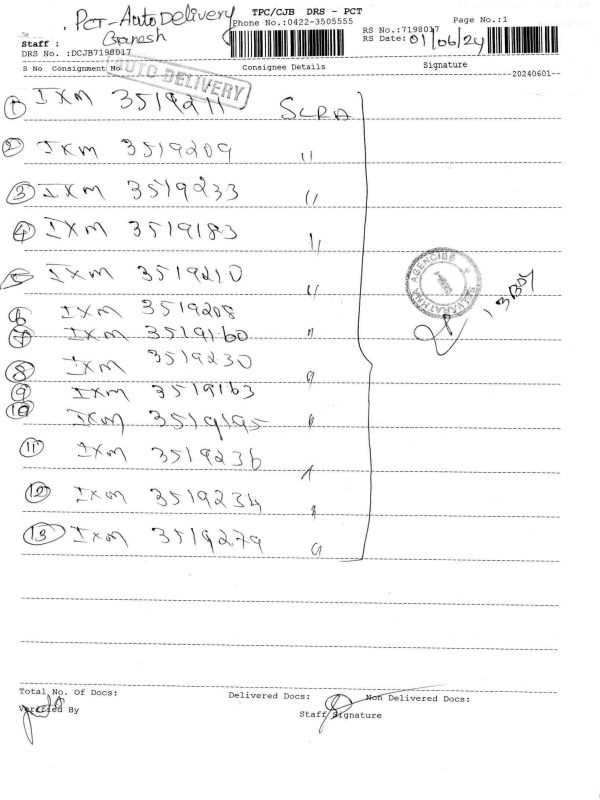 PCT-AutoDelivery
Ganesh
TPC/CJB DRS - PCT
Phone No.:0422-3505555
Page No.:1
RS No.:7198017
RS Date: 01/06/24
Staff :
DRS No. :DCJB7198017
S No Consignment No
Consignee Details
Signature
AUTO DELIVERY
20240601
1 IXM 3519211 SCRA
2 IXM 3519209 "
3 IXM 3519233 "
4 IXM 3519183 "
5 IXM 3519210 "
6 IXM 3519208
7 IXM 3519160 "
8 IXM 3519230 "
9 IXM 3519163
10 IXM 3519195 "
11 IXM 3519236 "
12 IXM 3519234 "
13 IXM 3519279 "
SELVARATHNA AGENCIES
13 BOY
Total No. Of Docs:
Delivered Docs:
Non Delivered Docs:
Verified By
Staff Signature